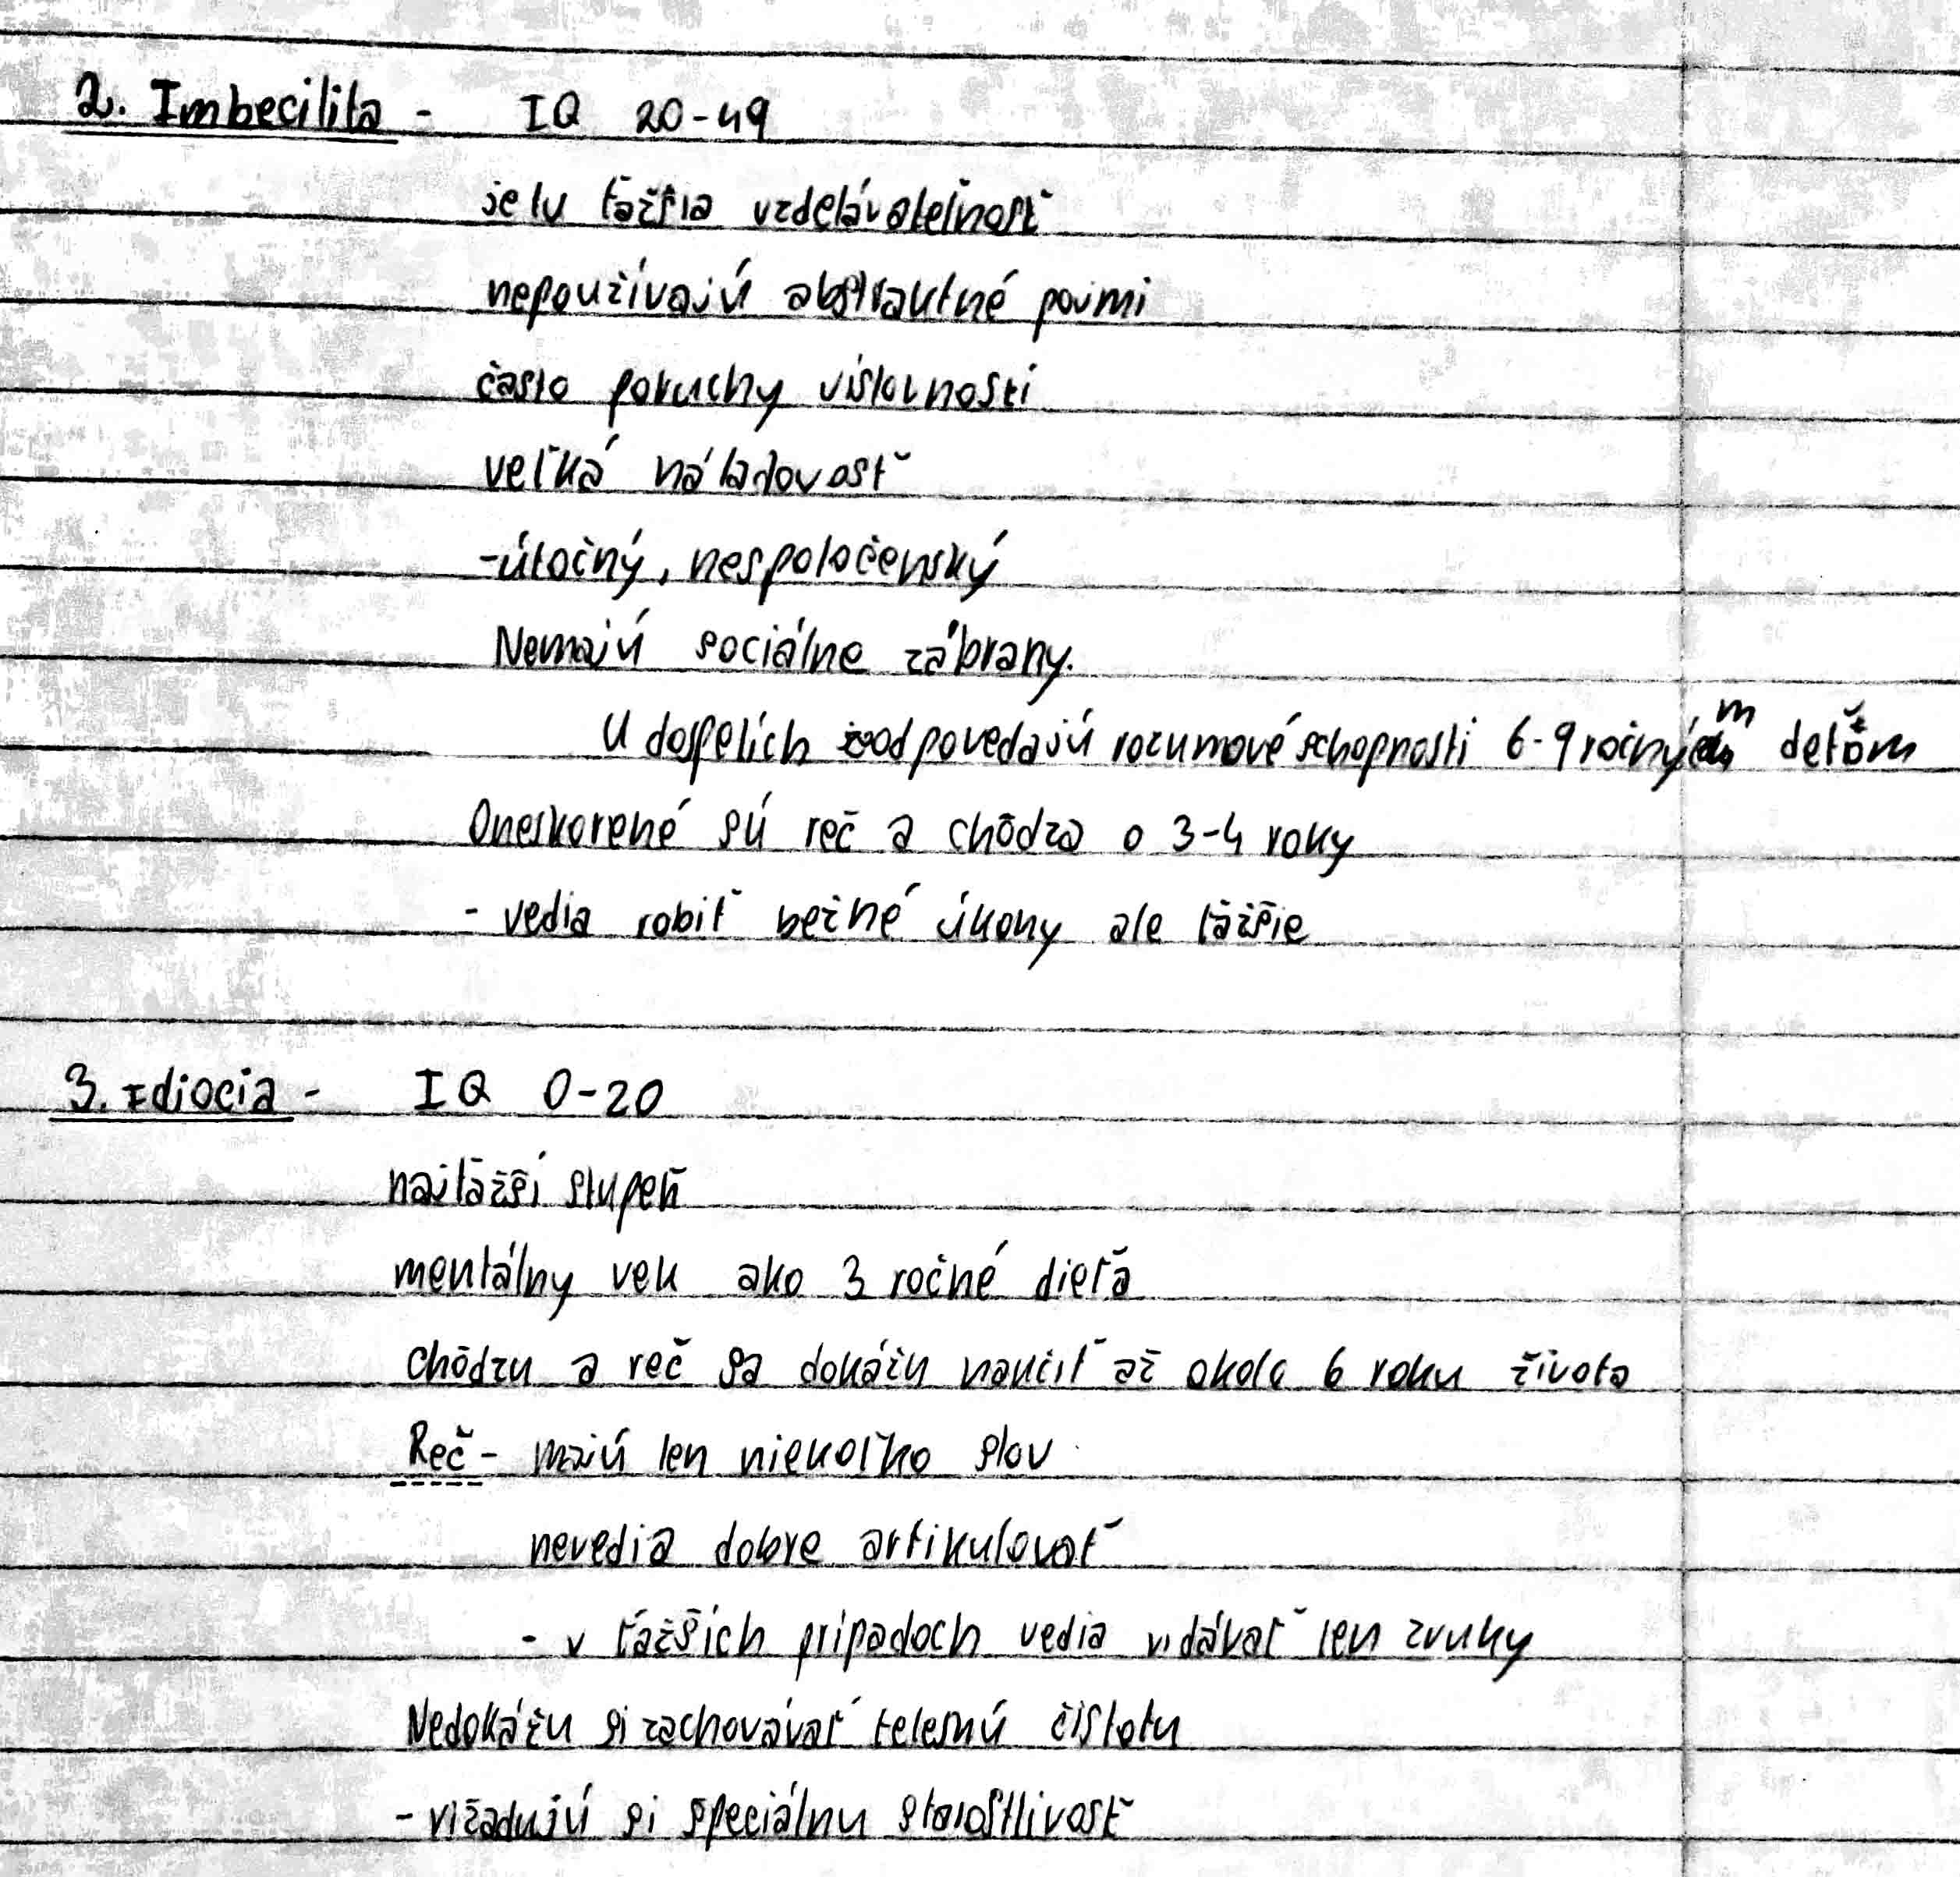 2. Imbecilita - IQ 20-49
je tu ťažšia vzdelávateľnosť
nepoužívajú abstraktné pojmi
často poruchy vislovnosti
veľká náladovosť
-útočný, nespoločenský
Nemajú sociálne zábrany.
U dospelích zodpovedajú rozumové schopnosti 6-9 ročným deťom
Oneskorené sú reč a chôdza o 3-4 roky
- vedia robiť bežné úkony ale ťažšie
3. Idiocia - IQ 0-20
najťažší stupeň
mentálny vek ako 3 ročné dieťa
chôdzu a reč sa dokážu naučiť až okolo 6 roku života
Reč - majú len niekoľko slov
nevedia dobre artikulovať
- v ťažších prípadoch vedia vidávať len zvuky
Nedokážu si zachovávať telesnú čistotu
- vižadujú si špeciálnu starostlivosť